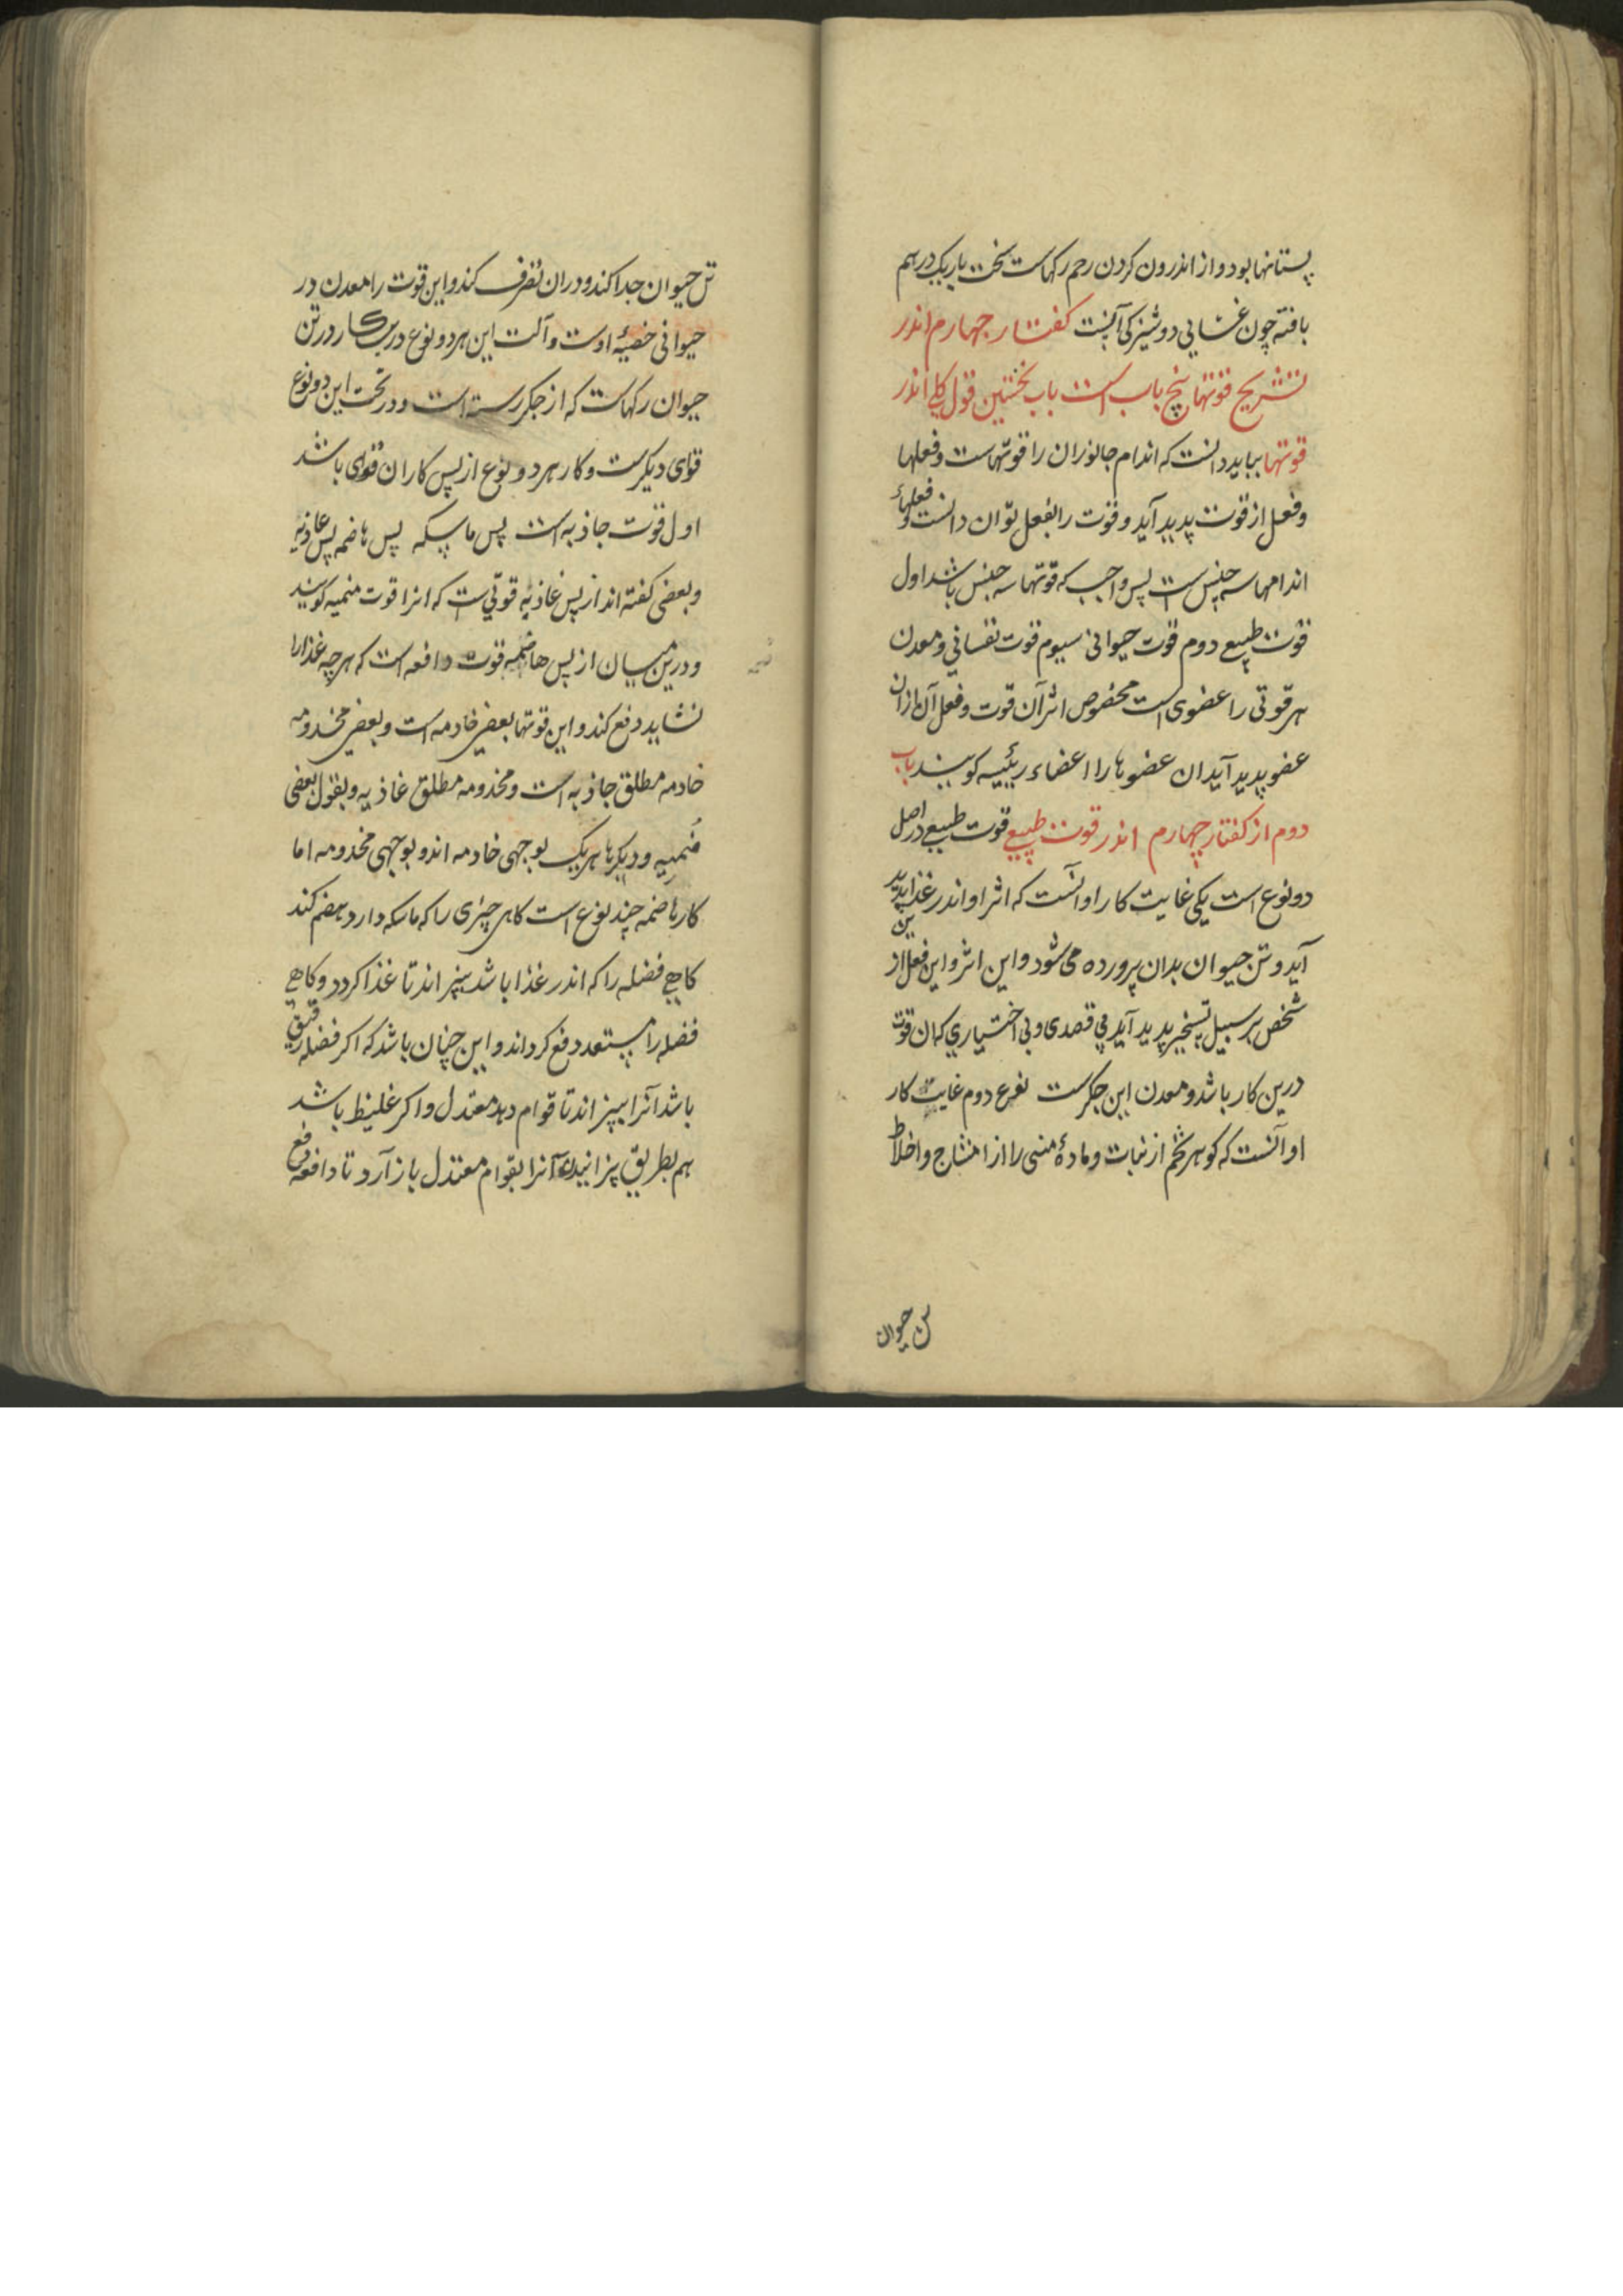 پستانها بود و از اندرون کردن رحم رکهاست سخت باریک درهم
بافته چون غشایی دوشیزکی آنست کفتار جهارم اندر
تشریح قوتها پنج باب است باب نخستین قول کلی اندر
قوتها بباید دانست که اندام جانوران را قوتهاست و فعلها
و فعل از قوت پدید آید و قوت را بفعل توان دانست و فعلهاء
اندامها سه جنس است پس واجب که قوتها سه جنس باشد اول
قوت طبیع دوم قوت حیوانی سیوم قوت نفسانی و معدن
هر قوتی را عضوی است مخصوص اثر آن قوت و فعل آن از ان
عضو پدید آید ان عضوها را اعضاء رئیسه کویند باب
دوم از کفتار چهارم اندر قوت طبیعی قوت طبیعی در اصل
دو نوع است یکی غایت کار او انست که اثر او اندر غذا پدید
آید و تن حیوان بدان پرورده می شود و این اثر و این فعل از
شخص بر سبیل تسخیر پدید آید بی قصدی و بی اختیاری که ان قوت
درین کار باشد و معدن این جکرست نوع دوم غایت کار
او آنست که کوهر تخم از نبات و مادهٔ منی را از امشاج و اخلاط
تن حیوان
تن حیوان جدا کند و دران تصرف کند و این قوت را معدن در
حیوانی خصیهٔ اوست و آلت این هر دو نوع درین کار در تن
حیوان رکهاست که از جکر رسته است و در تحت این دو نوع
قوای دیکرست و کار هر دو نوع از پس کار ان قوای باشد
اول قوت جاذبه است پس ماسکه پس هاضمه پس غاذیه
و بعضی کفته اند از پس غاذیه قوتی است که انرا قوت منمیه کویند
و درین میان از پس هاضمه قوت دافعه است که هر چه غذا را
نشاید دفع کند و این قوتها بعضی خادمه است و بعضی مخدومه
خادمه مطلق جاذبه است و مخدومه مطلق غاذیه و بقول بعضی
منمیه و دیکرها هر یک بوجهی خادمه اند و بوجهی مخدومه اما
کار هاضمه چند نوع است کاهی چیزی را که ماسکه دارد هضم کند
کاهی فضله را که اندر غذا باشد بپزاند تا غذا کردد و کاهی
فضله را مستعد دفع کرداند و این چنان باشد که اکر فضله رقیق
باشد آنرا بپزاند تا قوام دهد معتدل و اکر غلیظ باشد
هم بطریق پزانیدن آنرا بقوام معتدل باز آرد تا دافعه دفع